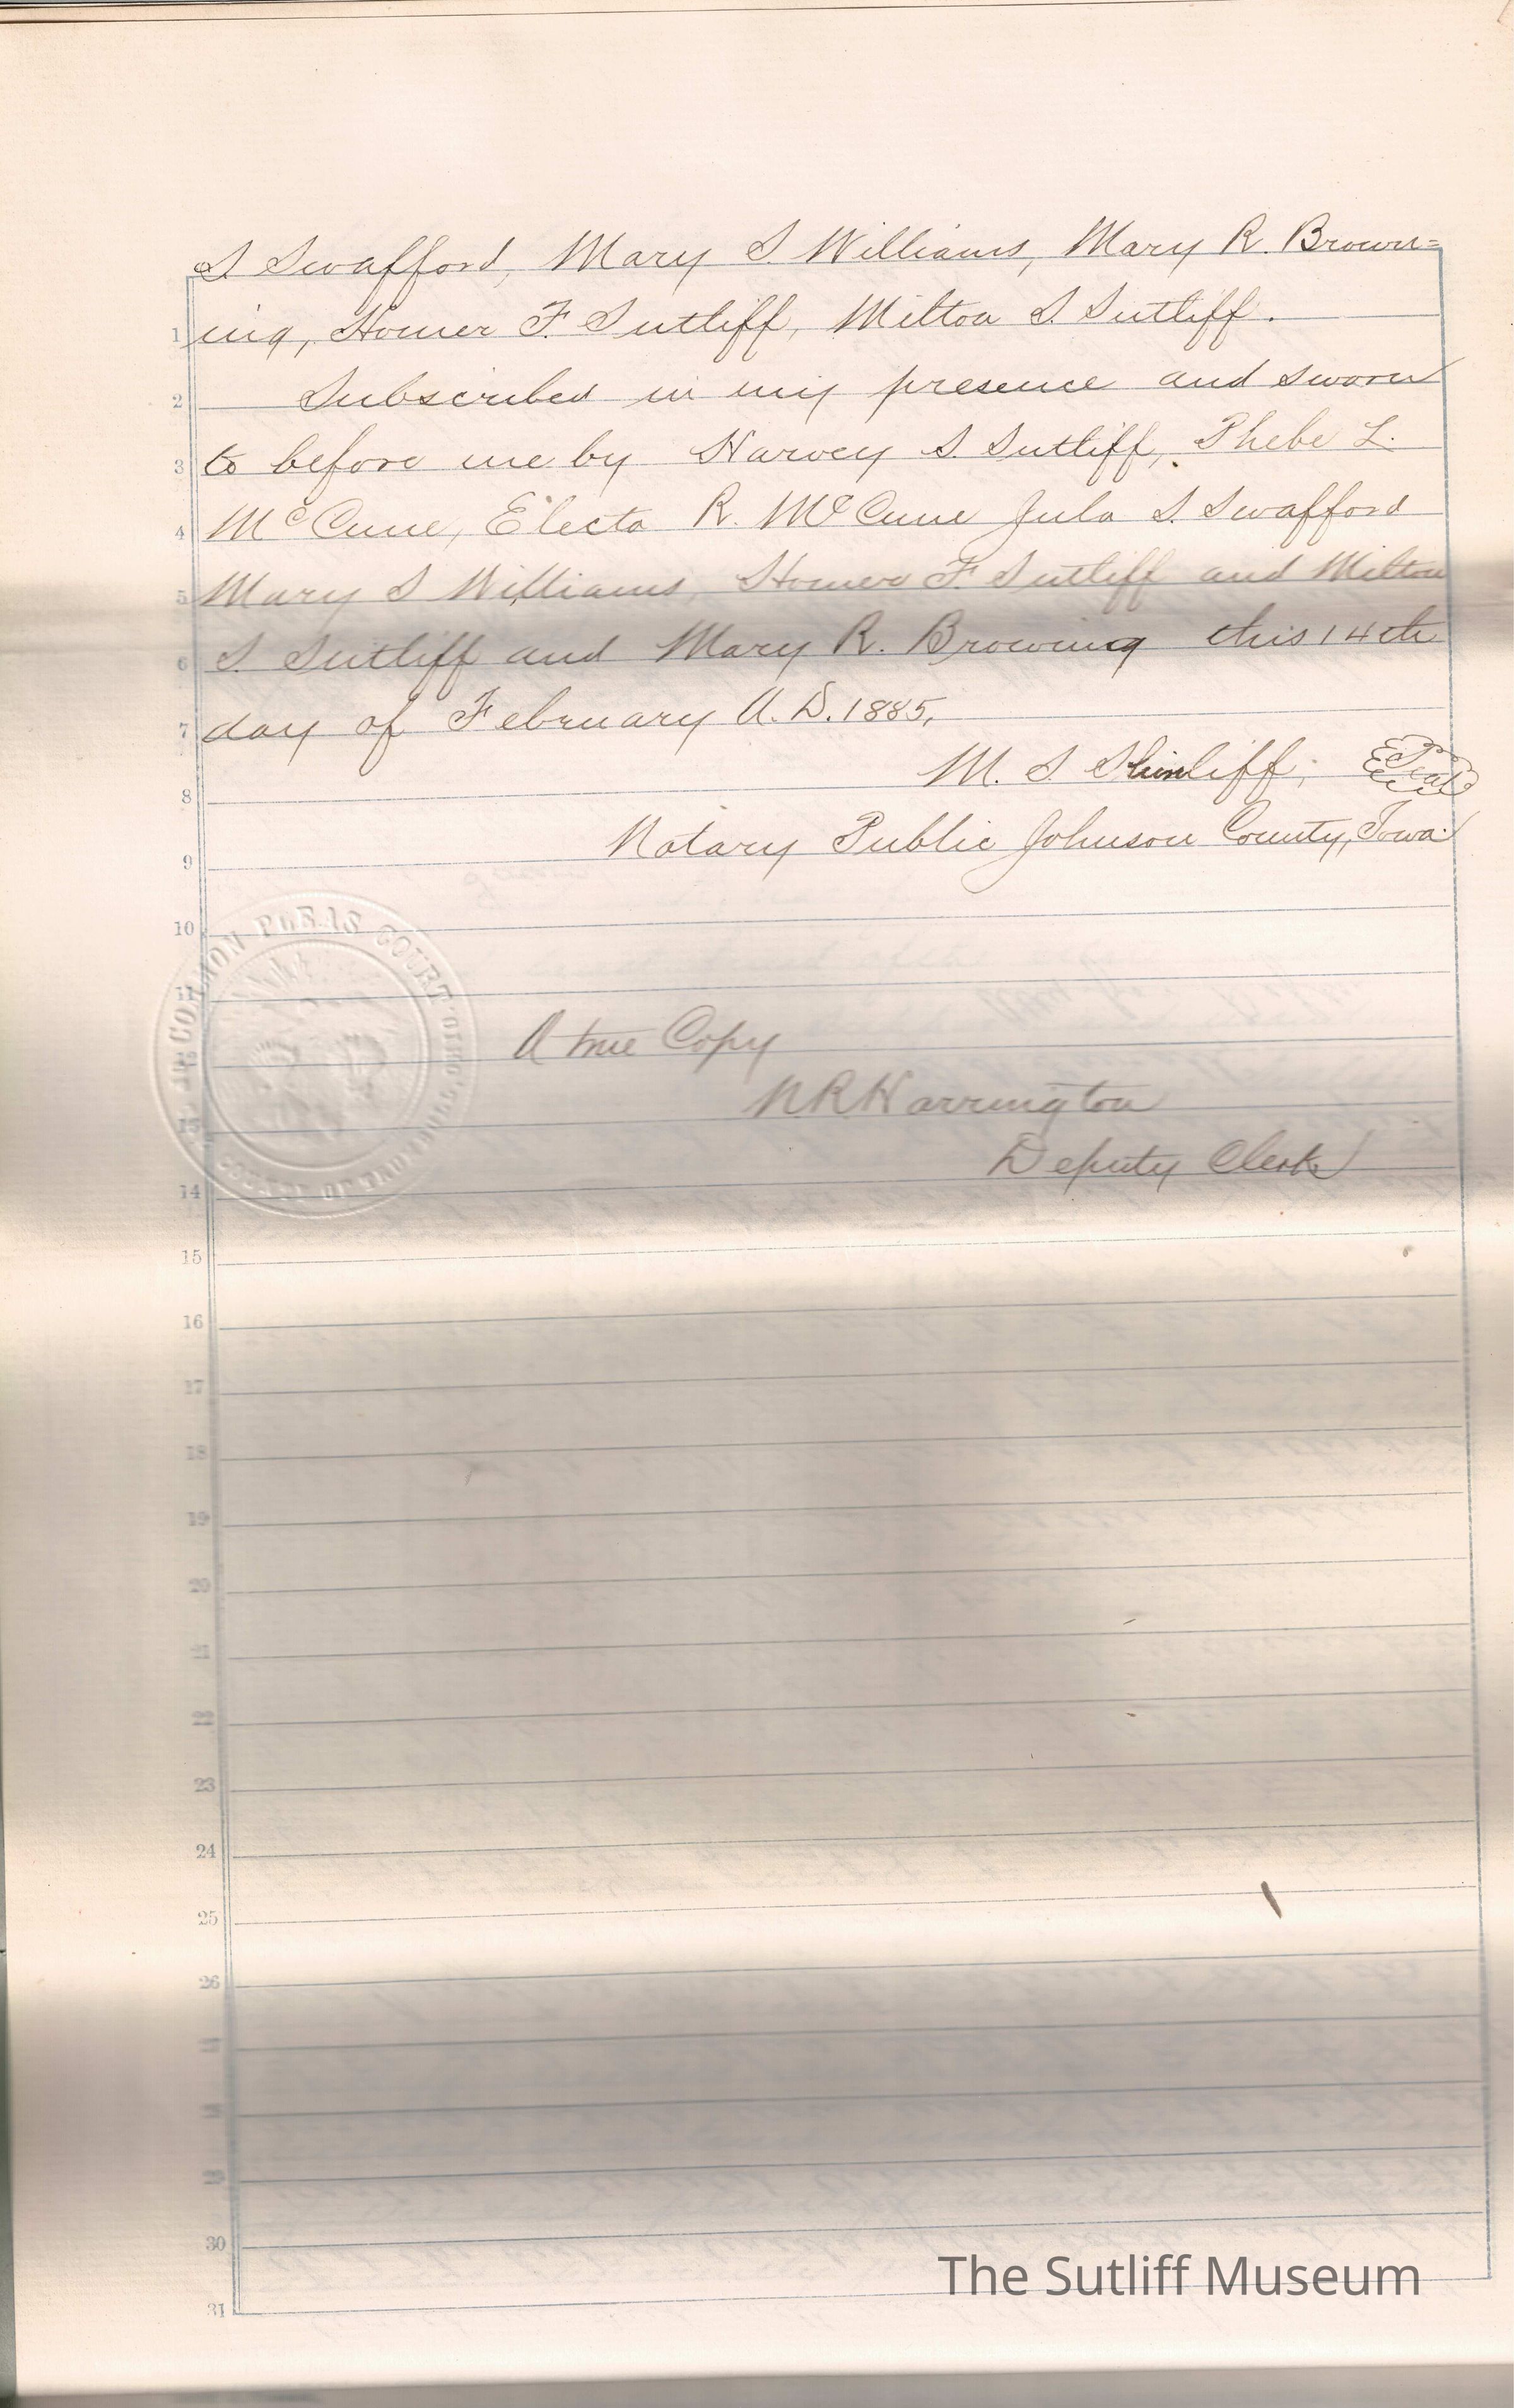 S Swafford, Mary S Williams, Mary R. Brown=
1 ing, Homer F. Sutliff, Milton S. Sutliff.
2 Subscribed in my presence and sworn
3 to before me by Harvey S. Sutliff, Phebe L.
4 McCune, Electa R. McCune Jula S. Swafford
5 Mary S Williams, Homer F. Sutliff and Milton
6 S. Sutliff and Mary R. Browing this 14th
7 day of February A.D. 1885,
8 M. S. Seal
9 Notary Public Johnson County, Iowa.
10
COMMON PLEAS COURT
COUNTY OF
11
12 A true Copy
13 N R Harrington
14 Deputy Clerk
15
16
17
18
19
20
21
22
23
24
25
26
27
28
29
30
The Sutliff Museum
31